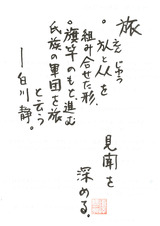 旅
見聞を
深める。
えん じゅう
㫃と从を
組み合せた形.
旗竿のもと進む
氏族の軍団を旅
と云う
——白川静。